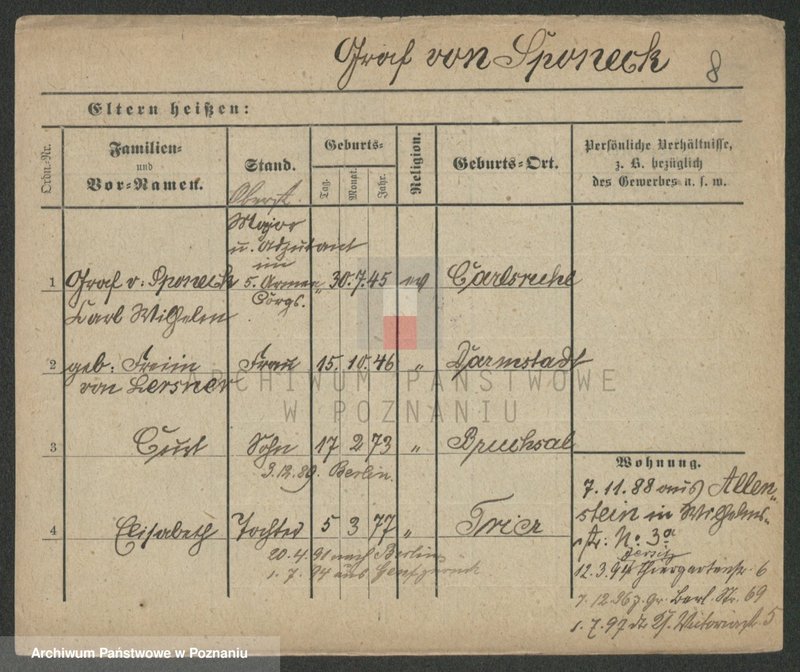 Graf von Sponeck 8
Eltern heißen:
Ordn.-Nr.
Familien- und Vor-Namen.
Stand.
Geburts-
Tag. Monat. Jahr.
Religion.
Geburts-Ort.
Persönliche Verhältnisse, z. B. bezüglich des Gewerbes u. s. w.
Oberst.
Major
u. Adjutant
im
1 Graf v: Sponeck 5. Armee 30. 7. 45 ev Carlsruhe
Corps.
Karl Wilhelm
2 geb: Freiin Frau 15. 10. 46 " Darmstadt
von Lersner
ARCHIWUM PAŃSTWOWE
W POZNANIU
3 Curt Sohn 17 2 73 " Bruchsal
3.12.89. Berlin
Wohnung.
7.11.88 aus Allen„
stein in Wilhelms„
str: No: 3a
4 Elisabeth Tochter 5 3 77 " Trier
20.4.91 nach Berlin
1.7.94 aus Genf zurück
12.3.94 Thiergartenstr. 6
7.12.96 z. Gr. Berl. Str. 69
1.7.97 Victoriastr. 5
Archiwum Państwowe w Poznaniu